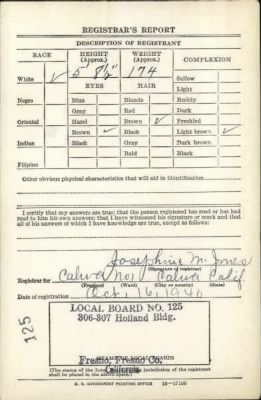 REGISTRAR'S REPORT
DESCRIPTION OF REGISTRANT
RACE
HEIGHT (Approx.)
WEIGHT (Approx.)
COMPLEXION
5' 8½"
174
White ✓
Sallow
EYES
HAIR
Light
Negro
Blue
Blonde
Ruddy
Gray
Red
Dark
Oriental
Hazel
Brown ✓
Freckled
Brown ✓
Black
Light brown ✓
Indian
Black
Gray
Dark brown
Bald
Black
Filipino
Other obvious physical characteristics that will aid in identification
I certify that my answers are true; that the person registered has read or has had
read to him his own answers; that I have witnessed his signature or mark and that
all of his answers of which I have knowledge are true, except as follows:
Josephine M. Jones
(Signature of registrar)
Registrar for Calwa No. 1 Calwa Calif
(Precinct) (Ward) (City or county) (State)
Date of registration Oct. 16, 1940
LOCAL BOARD NO. 125
306-307 Holland Bldg.
125
Fresno, Fresno Co.
California
(The stamp of the Local Board having jurisdiction of the registrant
shall be placed in the above space.)
U. S. GOVERNMENT PRINTING OFFICE